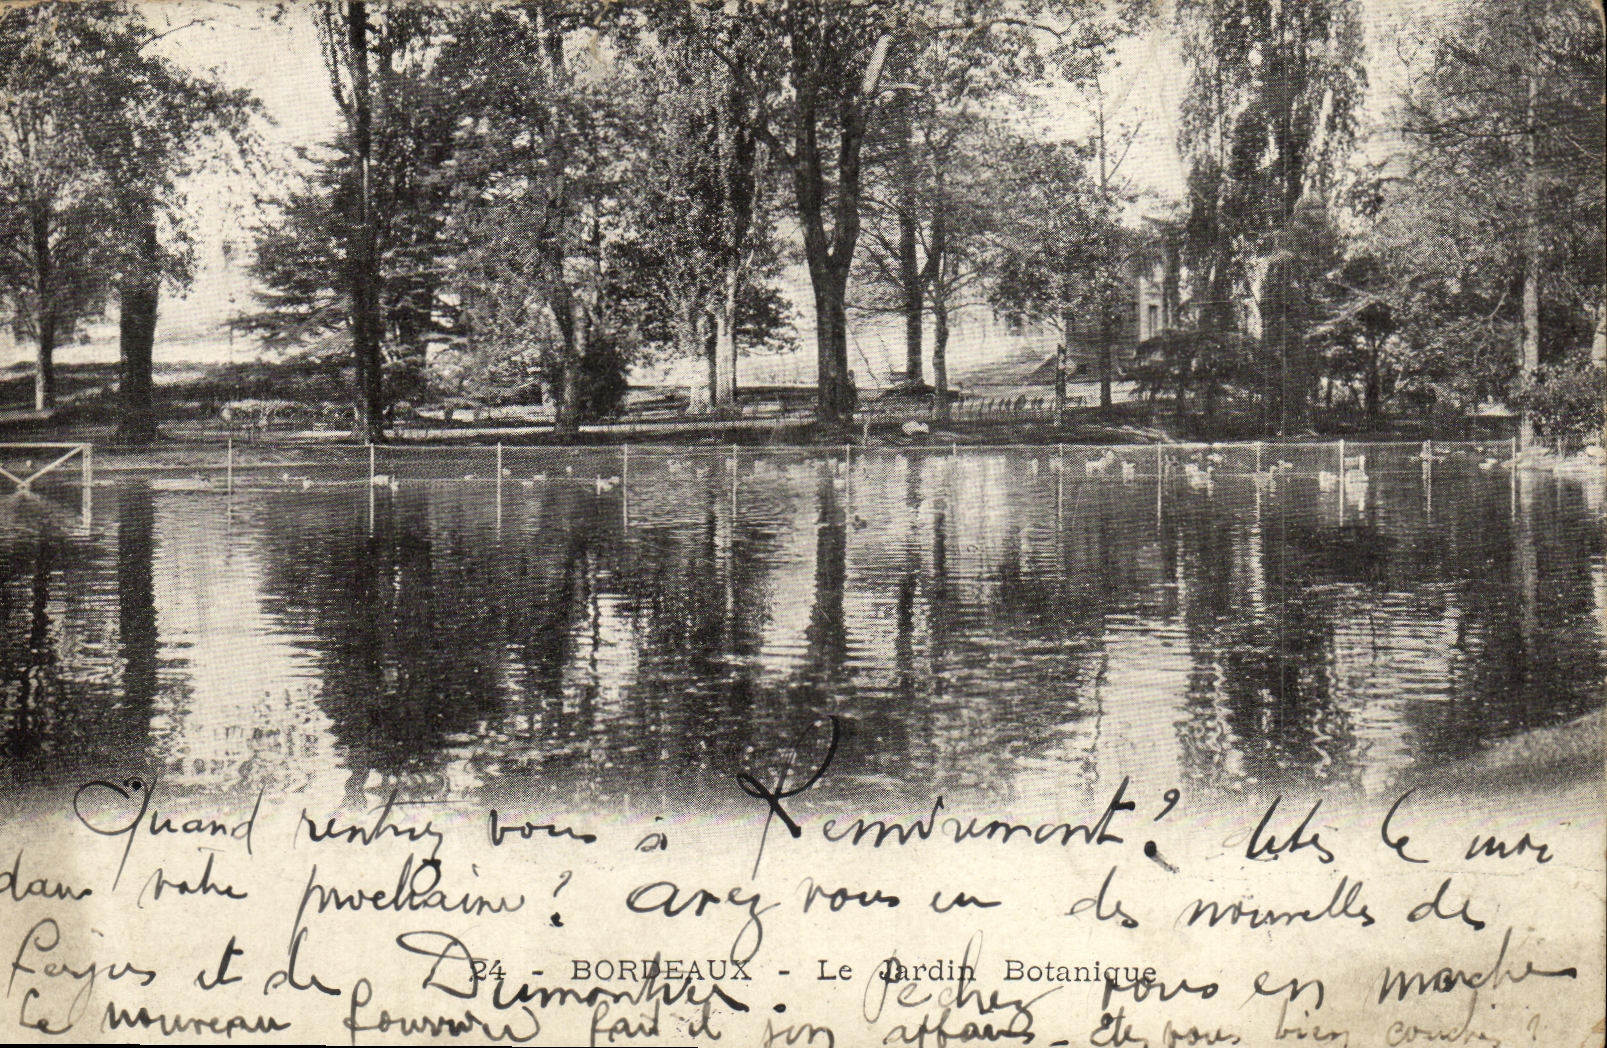 Quand rentrez vous à Remiremont? dites le moi
dans votre prochaine? avez vous eu des nouvelles de
et de Dumontier. Pechez vous en marche
24 - BORDEAUX - Le Jardin Botanique
Le nouveau fourrier fait il son affaire - Etes vous bien couchés?